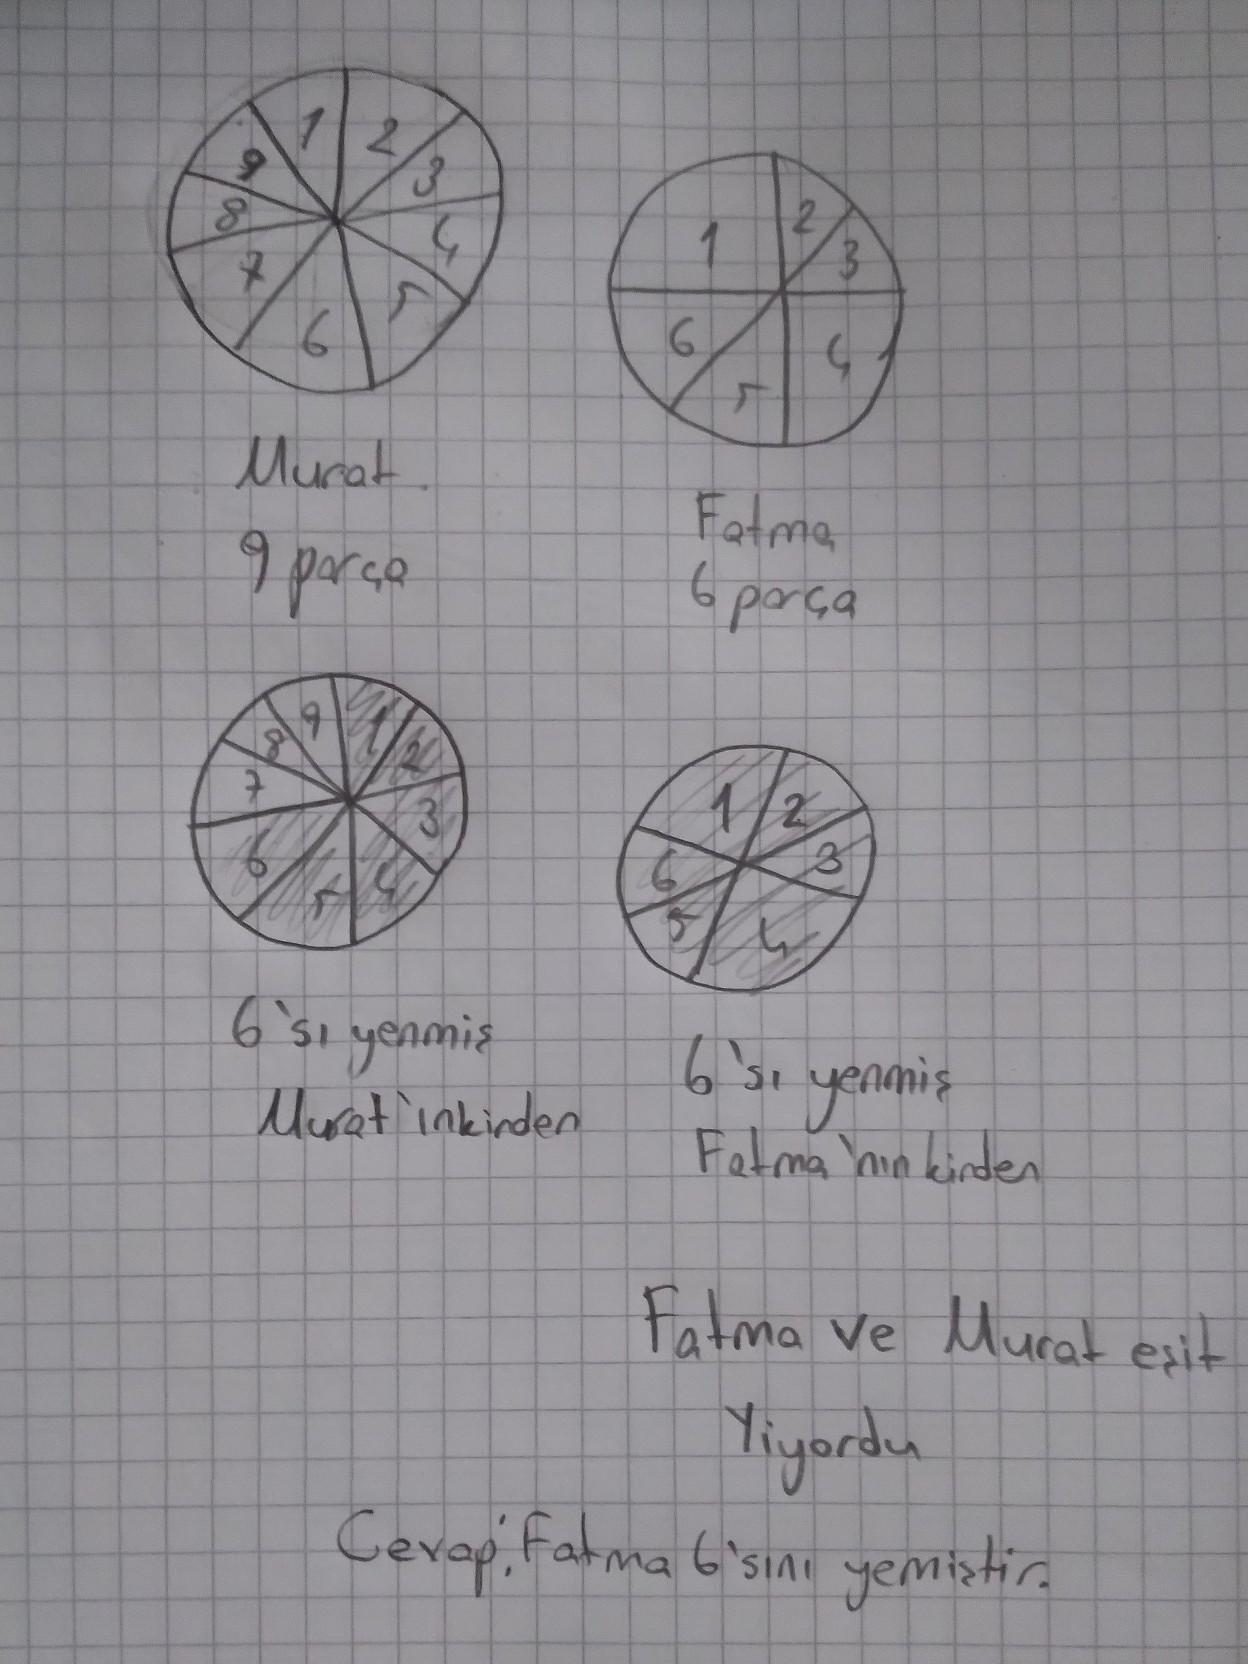 1 2 3 4 5 6 7 8 9
1 2 3 4 5 6
Murat
9 parça
Fatma
6 parça
1 2 3 4 5 6 7 8 9
1 2 3 4 5 6
6'sı yenmiş
Murat'inkinden
6'sı yenmiş
Fatma'nın kinden
Fatma ve Murat eşit
Yiyordu
Cevap: Fatma 6'sını yemiştir.